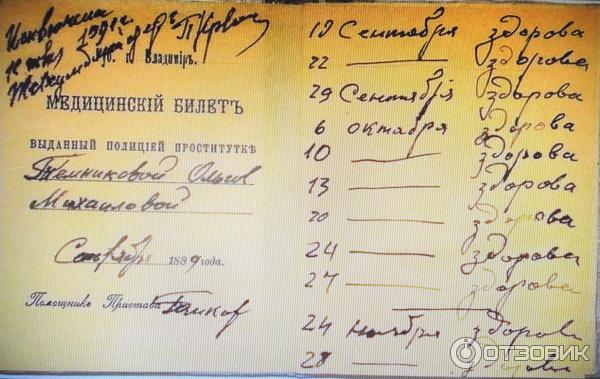 1891 г.
Владимiръ.
МЕДИЦИНСКIЙ БИЛЕТЪ
ВЫДАННЫЙ ПОЛИЦIЕЙ ПРОСТИТУТКѢ
Темниковой Ольги
Михаиловой
1889 года.
Помощникъ Пристава
19 Сентября здорова
22 — здорова
29 Сентября здорова
6 октября здорова
10 — здорова
13 — здорова
20 — здорова
24 — здорова
27 — здорова
24 ноября здорова
28 — здорова
ОТЗОВИК